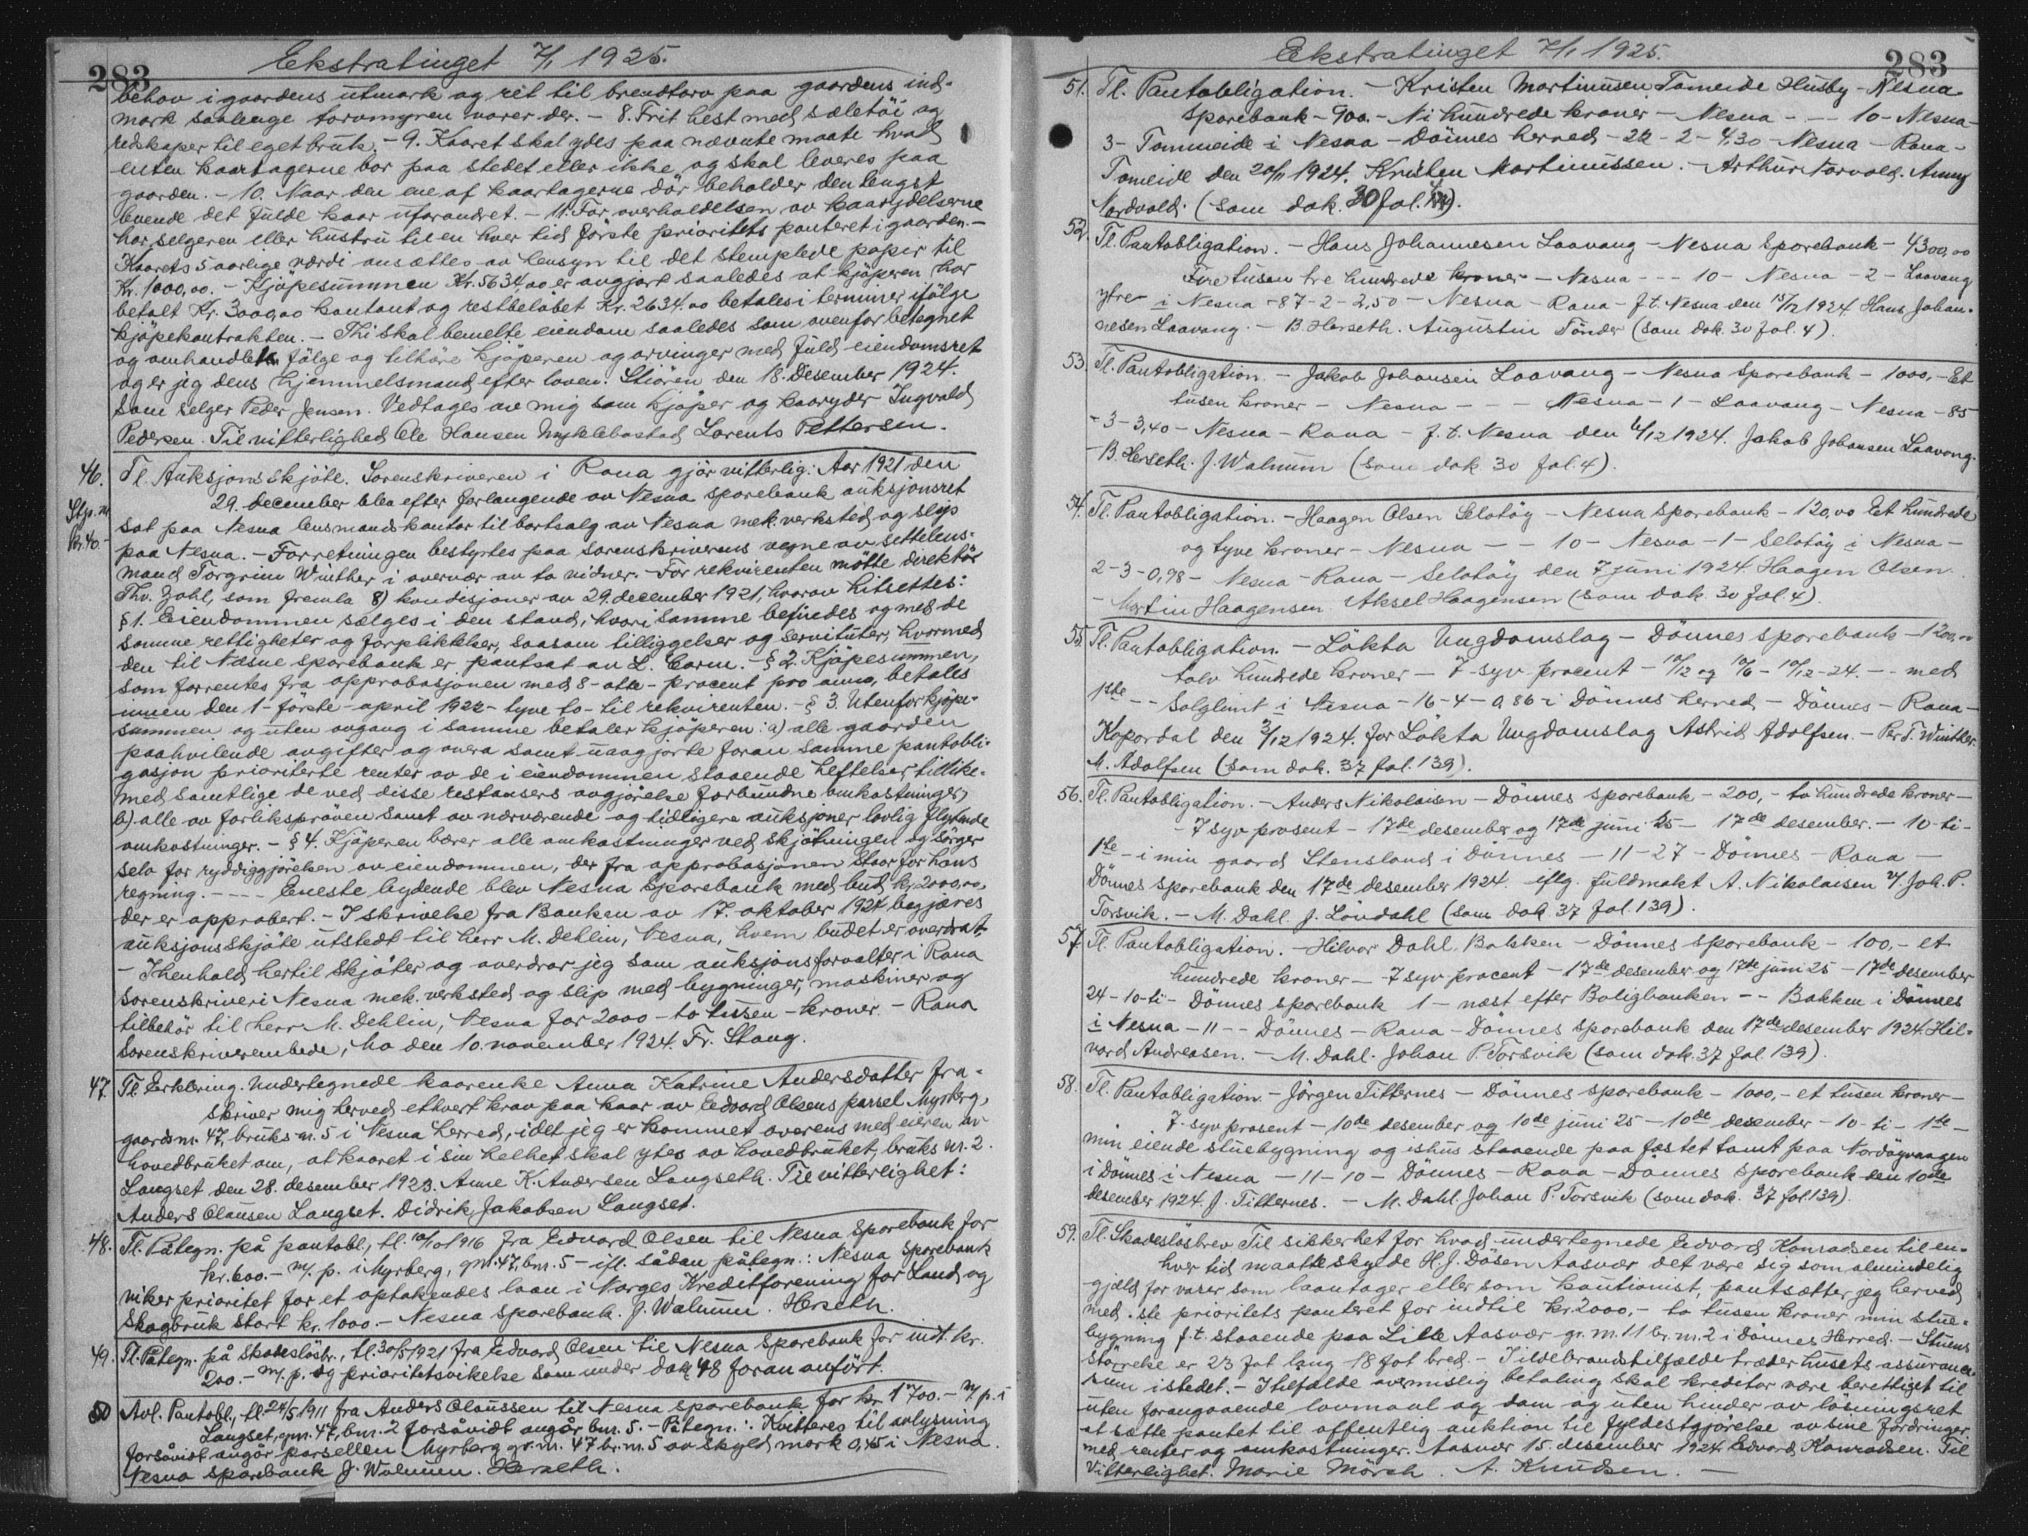 283
Ekstratinget 7/1 1925.
behov i gaardens utmark og ret til brendtorv paa gaardens ind-
mark saalenge torvmyren varer der. - 8. Frit hest med sæletöi og
redskaper til eget bruk. - 9. Kaaret skal ydes paa nævnte maate hvad
enten kaartagerne bor paa stedet eller ikke og skal leveres paa
gaarden. - 10. Naar den ene af kaartagerne dör beholder den lengst
levende det fulde kaar uforandret. - 11. For overholdelsen av kaarydelserne
har selgeren eller hustru til en hver tid förste prioritets panteret i gaarden. -
Kaarets 5 aarlige værdi ansættes av hensyn til det stemplede papir til
Kr. 1000,00. - Kjöpesummen Kr. 5634,00 er avgjort saaledes at kjöperen har
betalt Kr. 3000,00 kontant og restbelöbet Kr. 2634.00 betales i terminer ifölge
kjöpekontrakten. - Thi skal bemelte eiendom saaledes som ovenfor betegnet
og omhandlet fölge og tilhöre kjöperen og arvinger med fuld eiendomsret
og er jeg dens hjemmelsmand efter loven. Stiören den 18. Desember 1924.
Som selger Peder Jensen. Vedtages av mig som kjöper og kaaryder Ingvald
Pedersen. Til vitterlighed Ole Hansen Myklebostad Lorents Pettersen.
46. Tl. Auksjonsskjöte. Sorenskriveren i Rana gjör vitterlig: Aar 1921 den
29. december blev efter forlangende av Nesna sparebank auksjonsret
Stp. m. kr. 40.-
sat paa Nesna lensmandskontor til bortsalg av Nesna mek. verksted og slip
paa Nesna. - Forretningen bestyrtes paa sorenskriverens vegne av settelens-
mand Torgrim Winther i overvær av to vidner. - For rekvirenten mötte direktör
Thv. Zahl, som fremla 8) kondisjoner av 29. december 1921, hvorav hitsettes:
§ 1. Eiendommen sælges i den stand, hvori samme befindes og med de
samme rettigheter og forpliktelser, saasom tilliggelser og servituter, hvormed
den til Næsne sparebank er pantsat av L. Corm. - § 2. Kjöpesummen,
som forrentes fra approbasjonen med 8 - otte - procent pro anno, betales
innen den 1 - förste - april 1922 - tyve to - til rekvirenten. - § 3. Utenfor kjöpe-
summen og uten avgang i samme betaler kjöperen: a) alle gaarden
paahvilende avgifter og onera samt uavgjorte foran samme pantobli-
gasjon prioriterte renter av de i eiendommen staaende heftelser, tillike-
med samtlige de ved disse restansers avgjörelse forbundne omkostninger,
b) alle av forliksprøven samt av nærværende og tidligere auksjoner lovlig flytende
omkostninger. - § 4. Kjöperen bærer alle omkostninger ved skjötningen og sörger
selv for ryddiggjörelsen av eiendommen, der fra approbasjonen staar for hans
regning. - - - Eneste bydende blev Nesna Sparebank med bud kr. 2000,00,
der er approbert. - I skrivelse fra Banken av 17. oktober 1924 begjæres
auksjonsskjöte utstedt til herr M. Dehlin, Nesna, hvem budet er overdrat.
- I henhold hertil skjöter og overdrar jeg som auksjonsforvalter i Rana
sorenskriveri Nesna mek. verksted og slip med bygninger, maskiner og
tilbehör til herr M. Dehlin, Nesna for 2000 - to tusen - kroner. - Rana
Sorenskriverembede, Mo den 10. november 1924. Fr. Stang.
47. Tl. Erklæring. Undertegnede kaarenke Anna Katrine Andersdatter fra-
skriver mig herved ethvert krav paa kaar av Edvard Olsens parsel Myrberg,
gaardsnr. 47, bruksnr. 5 i Nesna herred, idet jeg er kommet overens med eieren av
hovedbruket om, at kaaret i sin helhet skal ytes av hovedbruket, bruks nr. 2.
Langset den 28. desember 1923. Anne K. Andersen Langseth. Til vitterlighet:
Anders Clausen Langset. Didrik Jakobsen Langset.
48. Tl. Påtegn. på pantobl., tl. 10/10 1916 fra Edvard Olsen til Nesna Sparebank for
kr. 600.- m/ p. i Myrberg, gnr. 47, bnr. 5 - ifl. sådan påtegn.: Nesna Sparebank
viker prioritet for et optakendes laan i Norges Kreditforening for Land og
Skogbruk stort kr. 1000.- Nesna sparebank. J. Walnum. Herseth.
49. Tl. Påtegn. på Skadeslösbr., tl. 30/5 1921 fra Edvard Olsen til Nesna Sparebank for indt. kr.
200.- m/ p. og prioritetsvikelse som under dok 48 foran anført.
50 Avl. Pantobl., tl. 24/5 1911 fra Anders Claussen til Nesna sparebank for kr. 1700.- m/ p. i
Langset, gnr. 47, bnr. 2 forsåvidt angår bnr. 5. - Påtegn.: Kvitteres til avlysning
forsåvidt angår parsellen Myrberg gr. nr. 47 br. nr. 5 av skyld mark 0,45 i Nesna.
Nesna Sparebank J. Walnum. Herseth.
283
Ekstratinget 7/1 1925.
51. Tl. Pantobligation. - Kristen Martinusen Tomeide Husby - Nesna
Sparebank - 900.- Ni hundrede kroner - Nesna - - - 10 - Nesna -
3 - Tommeide i Nesna - Dönnes herred - 22 - 2 - 4,30 - Nesna - Rana -
Tomeide den 20/11 1924. Kristen Martinussen. - Arthur Norvald. Anny
Nordvold. (som dok. 30 fol. 4).
52. Tl. Pantobligation. - Hans Johannesen Laavang - Nesna Sparebank - 4300,00
Fire tusen tre hundrede kroner - Nesna - - - 10 - Nesna - 2 - Laavang
ytre i Nesna - 87 - 2 - 2,50 - Nesna - Rana - f. t. Nesna den 15/12 1924 Hans Johan-
nesen Laavang. - B. Herseth. Augustin Tönder (som dok. 30 fol. 4).
53. Tl. Pantobligation. - Jakob Johansen Laavang - Nesna Sparebank - 1000,- Et
tusen kroner - Nesna - - - Nesna - 1 - Laavang - Nesna - 85
- 3 - 3,40 - Nesna - Rana - f. t. Nesna den 6/12 1924. Jakob Johansen Laavang.
- B. Herseth. J. Walnum (som dok 30 fol. 4).
54. Tl. Pantobligation. - Haagen Olsen Selotöy - Nesna Sparebank - 120,00 Et hundrede
og tyve kroner - Nesna - - 10 - Nesna - 1 - Selotöy i Nesna -
2 - 3 - 0,98 - Nesna - Rana - Selotöy den 7 juni 1924. Haagen Olsen.
- Martin Haagensen. Aksel Haagensen (som dok. 30 fol. 4).
55. Tl. Pantobligation. - Lökta Ungdomslag - Dönnes sparebank - 1200,00
tolv hundrede kroner - 7 syv procent - 10/12 og 10/6 - 10/12 - 24. - - med
1ste - - Solglimt i Nesna - 16 - 4 - 0,86 - i Dönnes herred - Dönnes - Rana -
Kopardal den 3/12 1924. for Lökta Ungdomslag Astrid Adolfsen. - Per T. Winther.
M. Adolfsen (som dok. 37 fol. 139).
56. Tl. Pantobligation. - Anders Nikolaisen - Dönnes sparebank - 200,- to hundrede kroner -
- 7 syv prosent - 17de desember og 17de juni 25 - 17de desember. - 10 - ti -
1ste - i min gaard Stensland i Dönnes - 11 - 27 - Dönnes - Rana -
Dönnes sparebank den 17de desember 1924. iflg. fuldmakt A. Nikolaisen v/ Joh. P.
Torsvik. - M. Dahl. J. Lövdahl (som dok 37 fol. 139).
57. Tl. Pantobligation. - Hilvar Dahl, Bakken - Dönnes Sparebank - 100,- et
hundrede kroner - 7 syv procent - 17de desember og 17de juni 25 - 17de desember
24 - 10 - ti - Dönnes sparebank 1 - næst efter Boligbanken - - Bakken i Dönnes
i Nesna - 11 - - Dönnes - Rana - Dönnes Sparebank den 17de desember 1924. Hil-
vard Andreasen. - M. Dahl. Johan P. Torsvik (som dok. 37 fol. 139).
58. Tl. Pantobligation - Jörgen Titternes - Dönnes sparebank - 1000,- et tusen kroner -
7 - syv prosent - 10de desember og 10de juni 25 - 10de desember - 10 - ti - 1ste -
min eiende stuebygning og ishus staaende paa fæstet tomt paa Nordöyvaagen
i Dönnes i Nesna - 11 - 10 - Dönnes - Rana - Dönnes Sparebank den 10de
desember 1924. J. Titternes. - M. Dahl. Johan P. Torsvik (som dok. 37 fol. 139).
59. Tl. Skadeslösbrev Til sikkerhet for hvad undertegnede Edvard Konradsen til en-
hver tid maatte skylde H. J. Dösen Aasvær det være sig som almindelig
gjæld for varer som laantager eller som kautionist, pantsætter jeg herved
med 1ste prioritets panteret for indtil kr. 2000,- to tusen kroner min stue-
bygning f. t. staaende paa Lille Aasvær gr. nr. 11 br. nr. 2 i Dönnes Herred. - Stuens
störrelse er 23 fot lang 18 fot bred. - I ildebrandstilfælde træder husets assurance-
sum istedet. - I tilfælde av mislig betaling skal kreditor være berettiget til
uten forangaaende lovmaal og dom og uten hinder av lösningsret
at sætte pantet til offentlig auktion til fyldestgjörelse av sine fordringer
med renter og omkostninger. Aasvær 15. desember 1924. Edvard Konradsen. Til
Vitterlighet: Marie Mörch. A. Knudsen. -